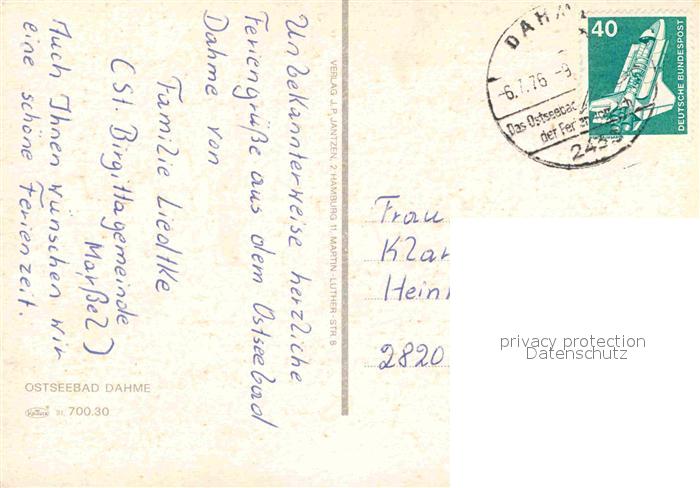 Unbekannterweise herzliche
Feriengrüße aus dem Ostseebad
Dahme von
Familie Liedtke
(St. Birgittagemeinde
Marßel)
Auch Ihnen wünschen wir
eine schöne Ferienzeit.
OSTSEEBAD DAHME
700.30
VERLAG J. P. JANTZEN, 2 HAMBURG 11, MARTIN-LUTHER-STR 8
DAHM
-6.7.76-9
Das Ostseebad
der Ferien
243
40
DEUTSCHE BUNDESPOST
Frau
Klar
Hein
2820
privacy protection
Datenschutz